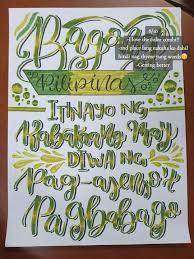 Pag-
Pilipinas
Itinayo ng
Kabataang May
Diwa ng
Pag-asenso't
Pagbabago
Also
-I love the color combi!!
-2nd place lang nakuha ko dahil
hindi nag rhyme yung words
-Getting better